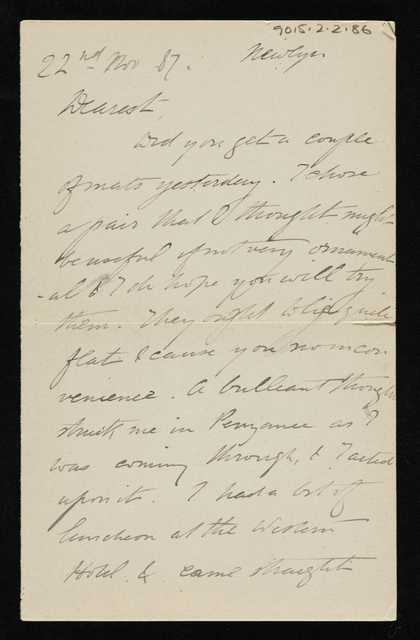 9015.2.2.86
22nd Nov 87. Newlyn
Dearest,
Did you get a couple
of mats yesterday. I chose
a pair that I thought might
be useful if not very ornament
-al & I do hope you will try
them. They ought to lie quite
flat & cause you no incon
venience. A brilliant thought
struck me in Penzance as I
was coming through, & I acted
upon it. I had a bit of
luncheon at the Western
Hotel & came straight